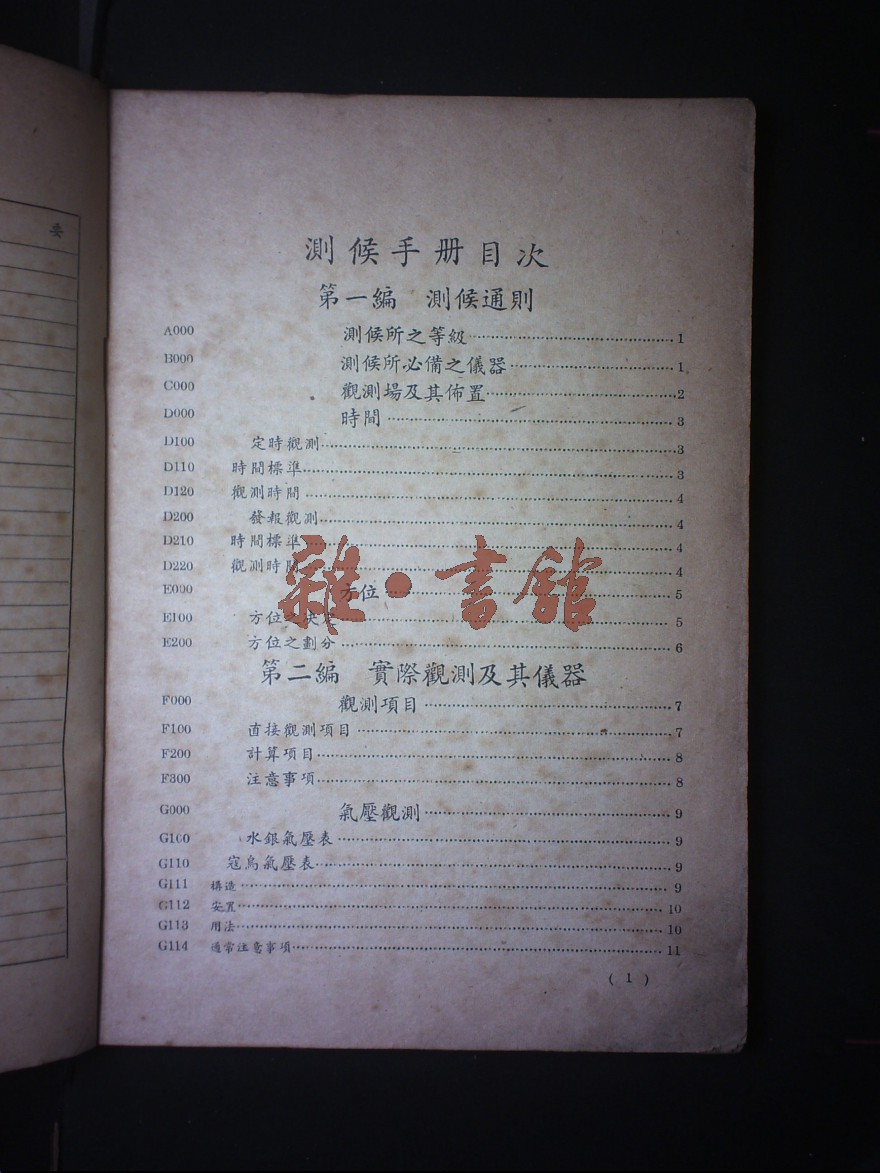 要
測候手册目次
第一編 測候通則
A000 測候所之等級 1
B000 測候所必備之儀器 1
C000 觀測場及其佈置 2
D000 時間 3
D100 定時觀測 3
D110 時間標準 3
D120 觀測時間 4
D200 發報觀測 4
D210 時間標準 4
D220 觀測時間 4
雜·書館
E000 方位 5
E100 方位之決定 5
E200 方位之劃分 6
第二編 實際觀測及其儀器
F000 觀測項目 7
F100 直接觀測項目 7
F200 計算項目 8
F300 注意事項 8
G000 氣壓觀測 9
G100 水銀氣壓表 9
G110 寇烏氣壓表 9
G111 構造 9
G112 安置 10
G113 用法 10
G114 通常注意事項 11
( 1 )